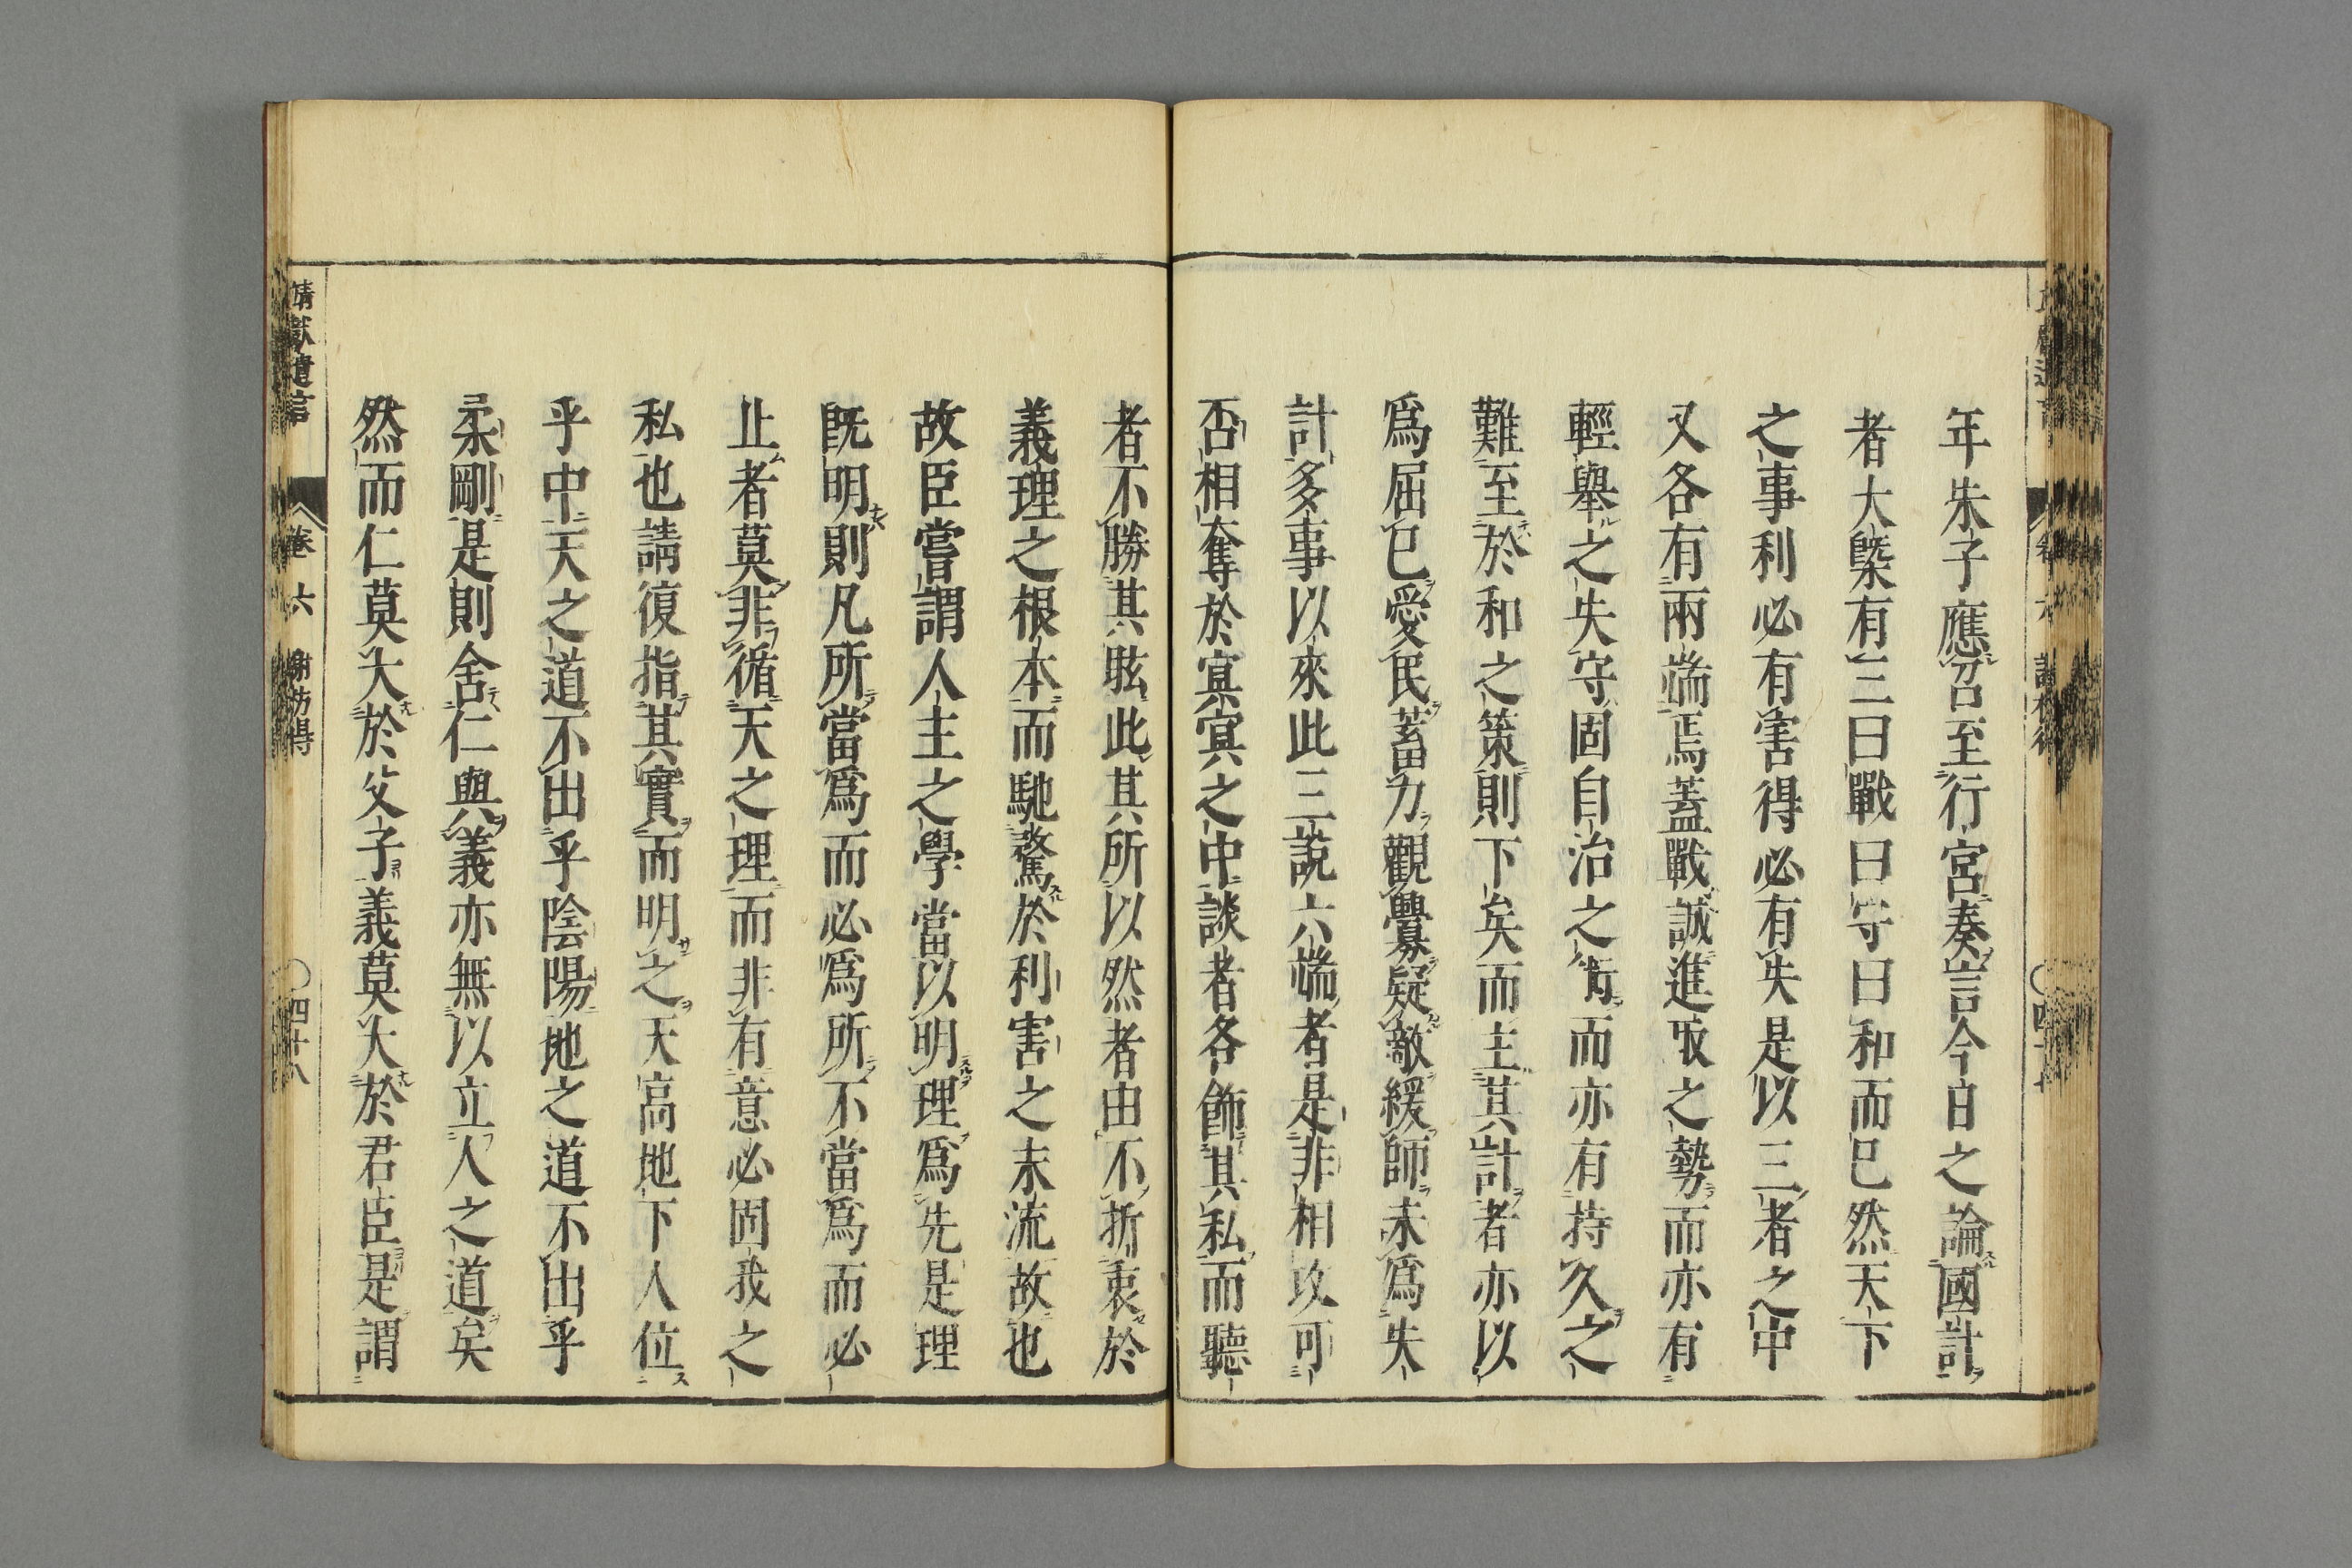 年朱子應召至行宮奏言今日之論國計
者大槩有三曰戰曰守曰和而已然天下
之事利必有害得必有失是以三者之中
又各有兩端焉蓋戰誠進取之勢而亦有
輕舉之失守固自治之術而亦有持久之
難至於和之策則下矣而主其計者亦以
爲屈已愛民蓄力觀釁疑敵緩師未爲失
計多事以來此三說六端者是非相攻可
否相奪於冥冥之中談者各飾其私而聽
者不勝其眩此其所以然者由不折衷於
義理之根本而馳騖於利害之末流故也
故臣嘗謂人主之學當以明理爲先是理
既明則凡所當爲而必爲所不當爲而必
止者莫非循天之理而非有意必固我之
私也請復指其實而明之天高地下人位
乎中天之道不出乎陰陽地之道不出乎
柔剛是則舍仁與義亦無以立人之道矣
然而仁莫大於父子義莫大於君臣是謂
靖獻遺言 卷六 謝枋得 〇四十八